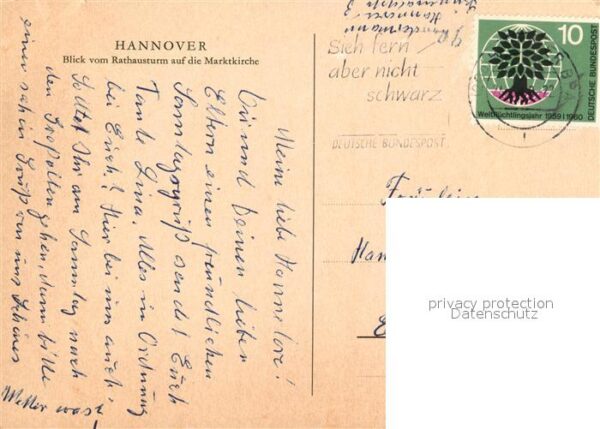 HANNOVER
Blick vom Rathausturm auf die Marktkirche
Meine liebe Hannelore!
Dir und Deinen lieben
Eltern einen freundlichen
Sonntagsgruß sendet Euch
Tante Lina. Alles in Ordnung
bei Euch? Hier bei uns auch.
Solltet Ihr am Sonntag nach
den Großeltern gehen, dann bitte
einen Gruß von uns
Wetter was?
Hannover
Sieh fern
aber nicht
schwarz
DEUTSCHE BUNDESPOST
10
DEUTSCHE BUNDESPOST
Weltflüchtlingsjahr 1959/1960
Fräulein
Han
privacy protection
Datenschutz